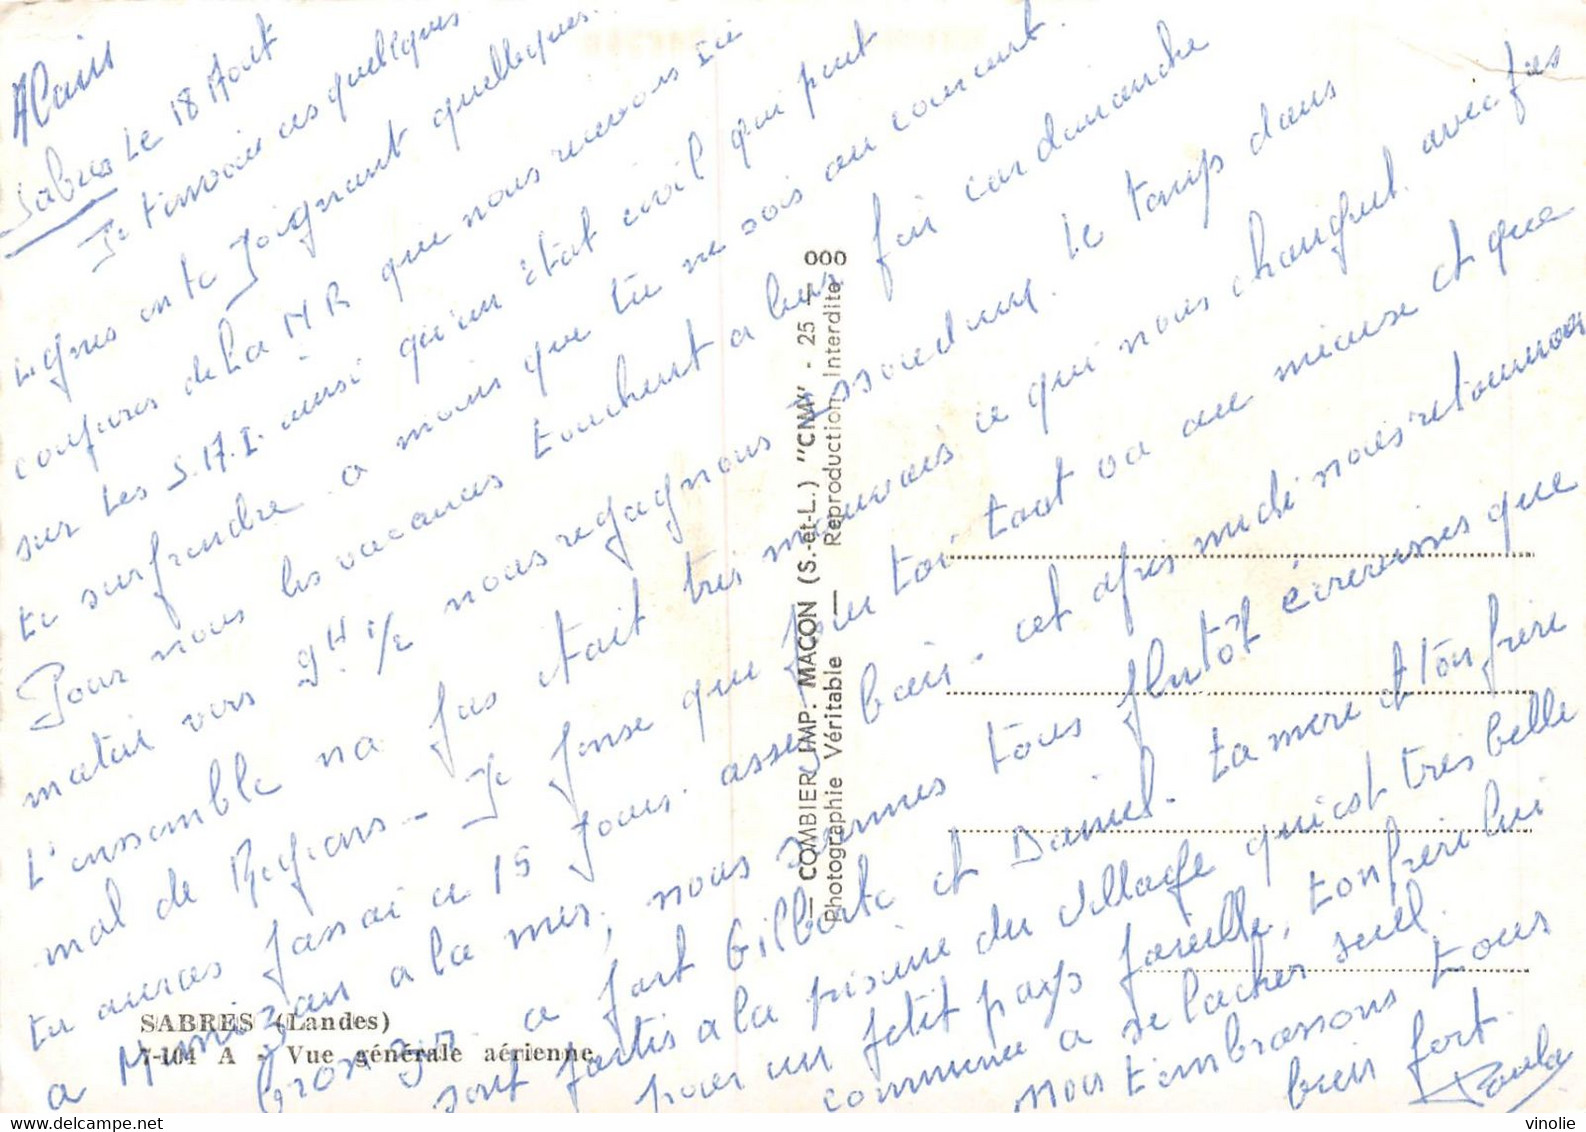 Alain
Sabres Le 18 Aout
Je t'envoie ces quelques
Lignes en te Joignant quelleques
coupures de la N R que nous recevons ici
sur les S.17.I. ainsi qu'un état civil qui peut
te surprendre a moins que tu ne sois au courant.
Pour nous les vacances touchent a leur fin car dimanche
matin vers 9H 1/2 nous regagnons Issoudun. Le temps dans
L'ensemble na pas était très mauvais ce qui nous changent avec pies
mal de Regions - Je pense que pour toi tout va au mieuse et que
tu auras passai ce 15 Jours assez bien - cet après midi nous retournons
a Mimizan a la mer, nous sommes tous plutôt écrevisses que
bronzer a part Gilberte et Daniel. ta mere et ton frère
sont partis a la piscine du village qui est tres belle
pour un petit pays pareille, ton frère lui
commence a se lacher seul.
nous t'embrassons tous
bien fort.
Paula
SABRES (Landes)
7-104 A - Vue générale aérienne
— COMBIER IMP. MACON (S.-et-L.) "CNM" - 25 — 000
Photographie Véritable — Reproduction Interdite
vinolie